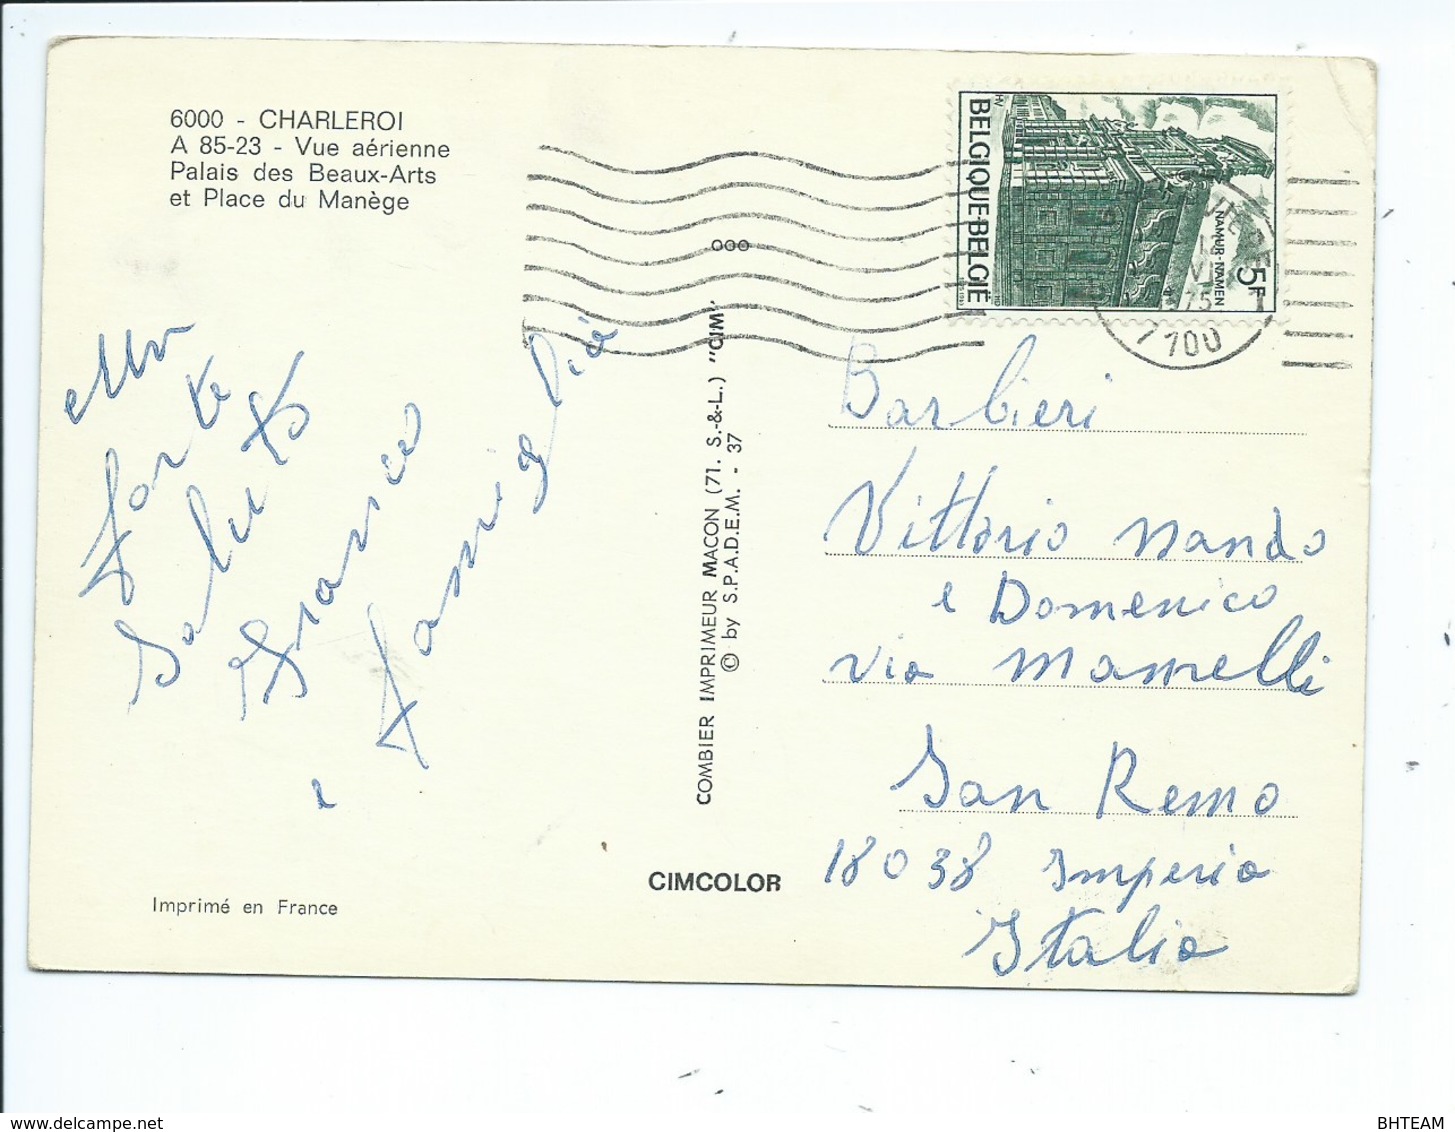 6000 - CHARLEROI
A 85-23 - Vue aérienne
Palais des Beaux-Arts
et Place du Manège
BELGIQUE-BELGIË
NAMUR-NAMEN
5F
7100
ooo
COMBIER IMPRIMEUR MACON (71. S.-&-L.) "CIM"
© by S.P.A.D.E.M. - 37
un
forte
saluto
Franco
e famiglia
Barbieri
Vittorio Nando
e Domenico
via Mamelli
San Remo
18038 Imperia
Italia
CIMCOLOR
Imprimé en France
BHTEAM